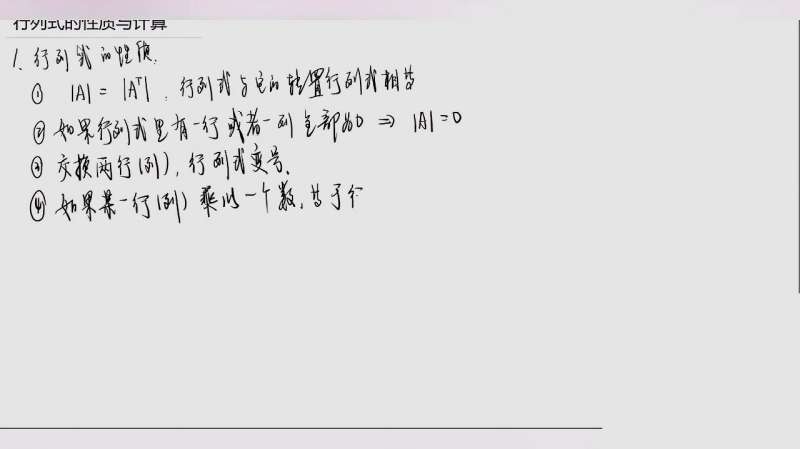 行列式的性质与计算
1. 行列式的性质.
① |A| = |Aᵀ|. 行列式与它的转置行列式相等
② 如果行列式里有一行或者一列全部为0 ⇒ |A|=0
③ 交换两行(列), 行列式变号.
④ 如果某一行(列) 乘以一个数, 等于行